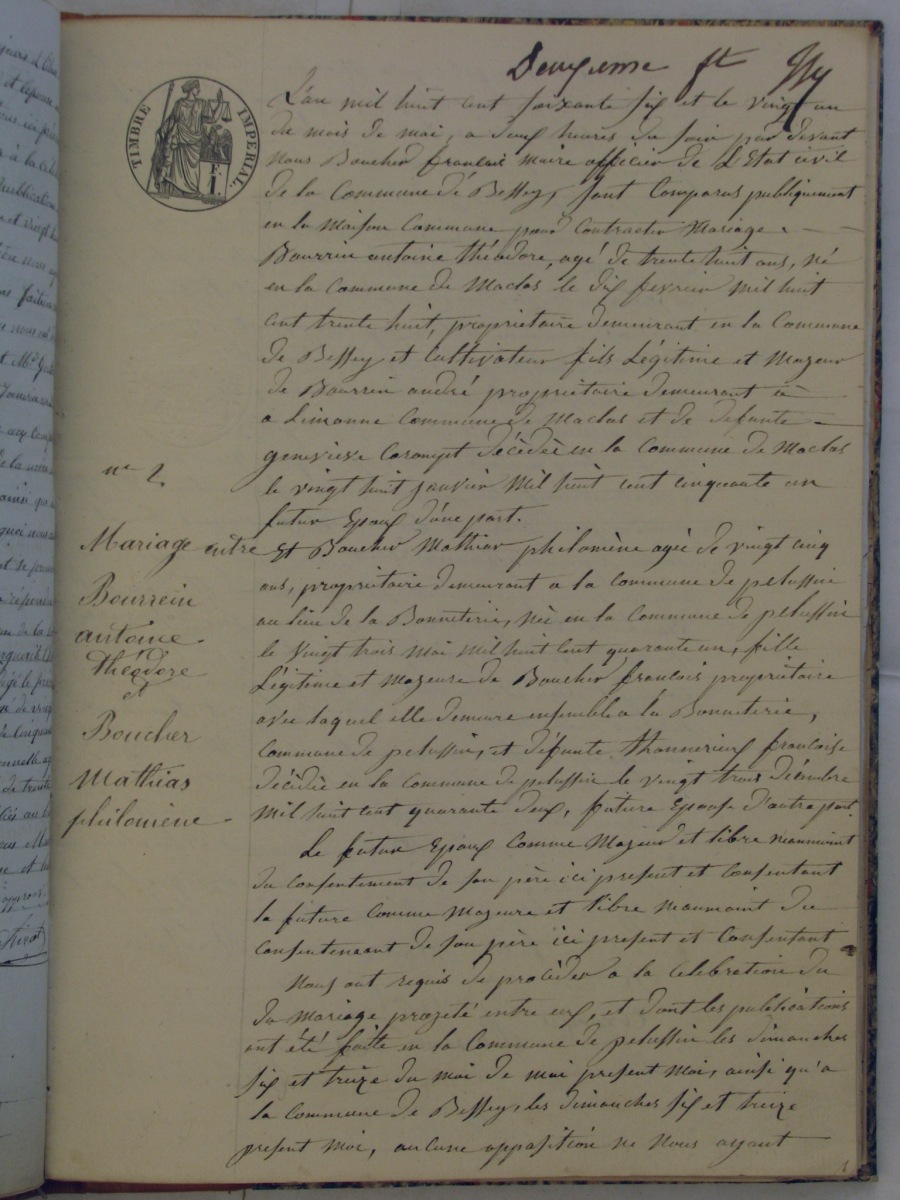 Deuxieme ft
TIMBRE IMPERIAL.
F. 1.
L'an mil huit cent soixante six et le vingt un
du mois de mai, a deux heures du soir par devant
nous Boucher francois maire officier de L'Etat civil
de la Commune de Bessey, sont Comparus publiquement
en la maison Commune pour Contracter Mariage.
Bourrin antoine théodore, agé de trente huit ans, né
en la Commune de Maclas le dix fevrier mil huit
cent trente huit, propriétaire demeurant en la Commune
de Bessey et Cultivateur fils Légitime et Mageur
de Bourrin andré propriétaire demeurant
a Limonne Commune de Maclas et de defunte
genevieve décédée en la Commune de Maclas
le vingt huit janvier Mil huit cent cinquante un
futur Epoux d'une part.
Et Boucher Mathias philomène agée de vingt cinq
ans, propriétaire demeurant a la Commune de pelussin
au lieu de la Bonneterie, née en la Commune de pelussin
le vingt trois Mai Mil huit Cent quarante un, fille
Légitime et Mageure de Boucher francois propriétaire
avec laquel elle demeure ensemble a la Bonneterie,
Commune de pelussin, et défunte thonnerieux francoise
décédée en la Commune de pelussin le vingt trois décembre
Mil huit Cent quarante deux, future Epouse d'autre part
Le futur Epoux Comme Mageur et libre neanmoint
du Consentement de son père ici present et Consentant
la future Comme Mageure et libre neanmoint du
Consentement de son père ici present et Consentant
Nous ont requis de procéder a la Celebration du
du Mariage progeté entre eux, et dont les publications
ont été faite en la Commune de pelussin les dimanches
six et treize du moi de mai present moi, ainsi qu'a
la Commune de Bessey, les dimanches six et treize
present moi, aucune opposition ne Nous ayant
nº 2
Mariage entre
Bourrein
antoine
Théodore
et
Boucher
Mathias
philomène